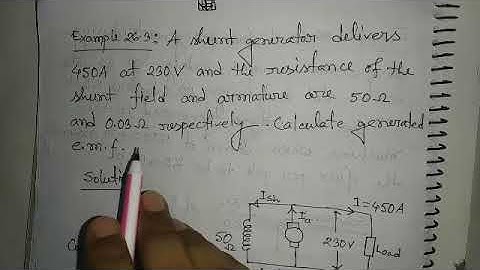 Example 26.3: A shunt generator delivers
450A at 230V and the resistance of the
shunt field and armature are 50Ω
and 0.03Ω respectively. Calculate generated
e.m.f.
Solut
Ish
I = 450A
Ia
50
Ω
230V
Load